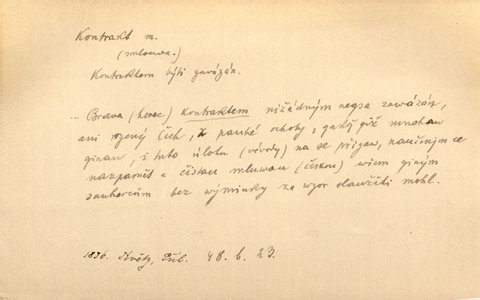 Kontrakt m.
(mlouva.)
Kontraktem býti zavázán.
... Brava (herec) kontraktem nižádným negsa zawázán,
ani rozený Čech, z pauhé ochoty, gakž giž mnohau
ginau, i tuto úlohu (vévody) na se přigaw, naučeným se
nazpaměť a čistau mluwau (českau) wšem giným
saukercům bez výminky za wzor slaužiti mohl.
1836. Květy, Příl. 48. b. 23.